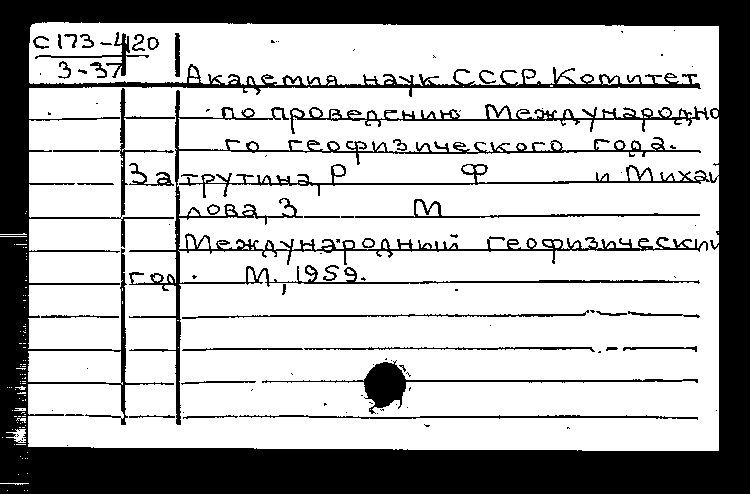 С173-4/20
3-37
Академия наук СССР. Комитет
по проведению Международно
го геофизического года.
Затрутина, Р Ф и Михай
лова, З М
Международный геофизический
год. М., 1959.